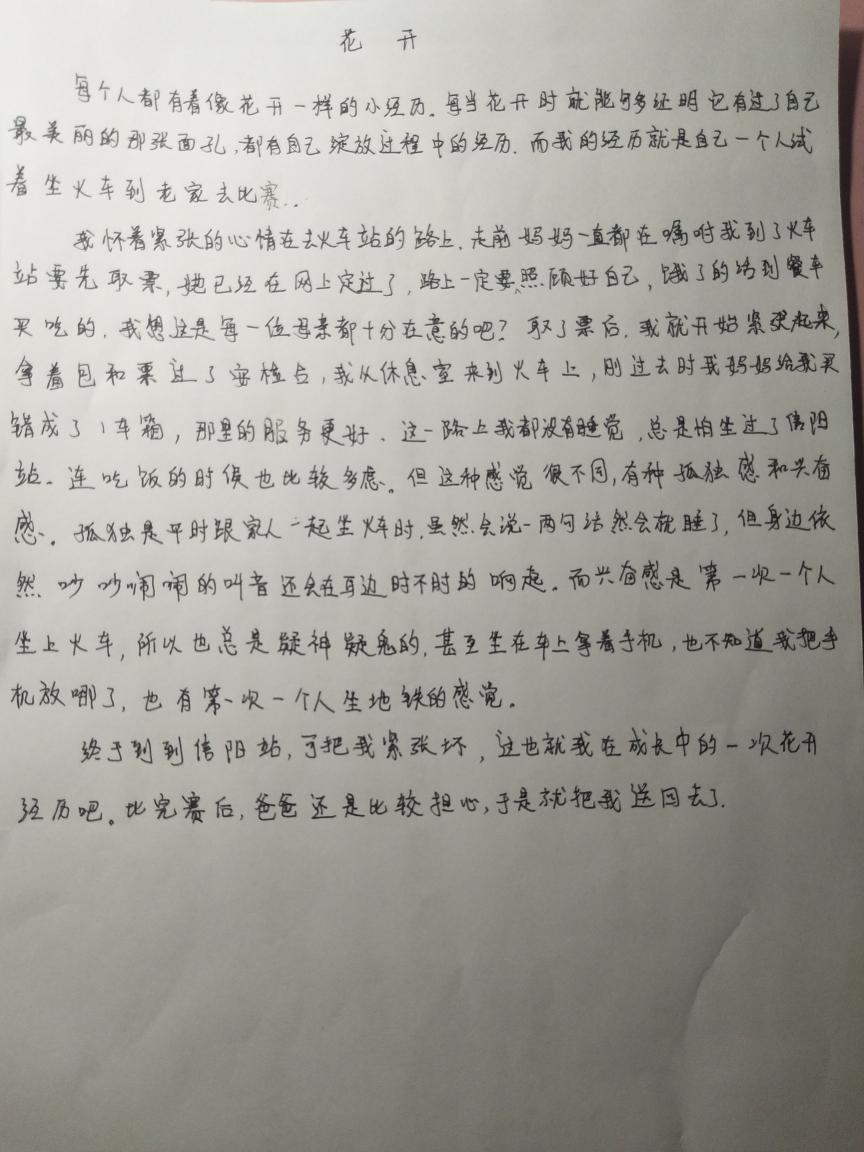 花 开
每个人都有着像花开一样的小经历。每当花开时就能够多证明它有过了自己
最美丽的那张面孔,都有自己绽放过程中的经历。而我的经历就是自己一个人试
着坐火车到老家去比赛..
我怀着紧张的心情在去火车站的路上、走前妈妈一直都在嘱咐我到了火车
站要先取票,她已经在网上定过了,路上一定要照顾好自己,饿了的话到餐车
买吃的。我想这是每一位母亲都十分在意的吧?取了票后,我就开始紧张起来,
拿着包和票过了安检台,我从休息室来到火车上,刚过去时我妈妈给我买
错成了1车箱,那里的服务更好.这一路上我都没有睡觉,总是怕坐过了信阳
站.连吃饭的时候也比较多虑。但这种感觉很不同,有种孤独感和兴奋
感。孤独是平时跟家人一起坐火车时,虽然会说一两句话然会就睡了,但身边依
然吵吵闹闹的叫音还会在耳边时不时的响起。而兴奋感是第一次一个人
坐上火车,所以也总是疑神疑鬼的,甚至坐在车上拿着手机,也不知道我把手
机放哪了,也有第一次一个人坐地铁的感觉。
终于到到信阳站,可把我紧张坏,这也就我在成长中的一次花开
经历吧。比完赛后,爸爸还是比较担心,于是就把我送回去了.